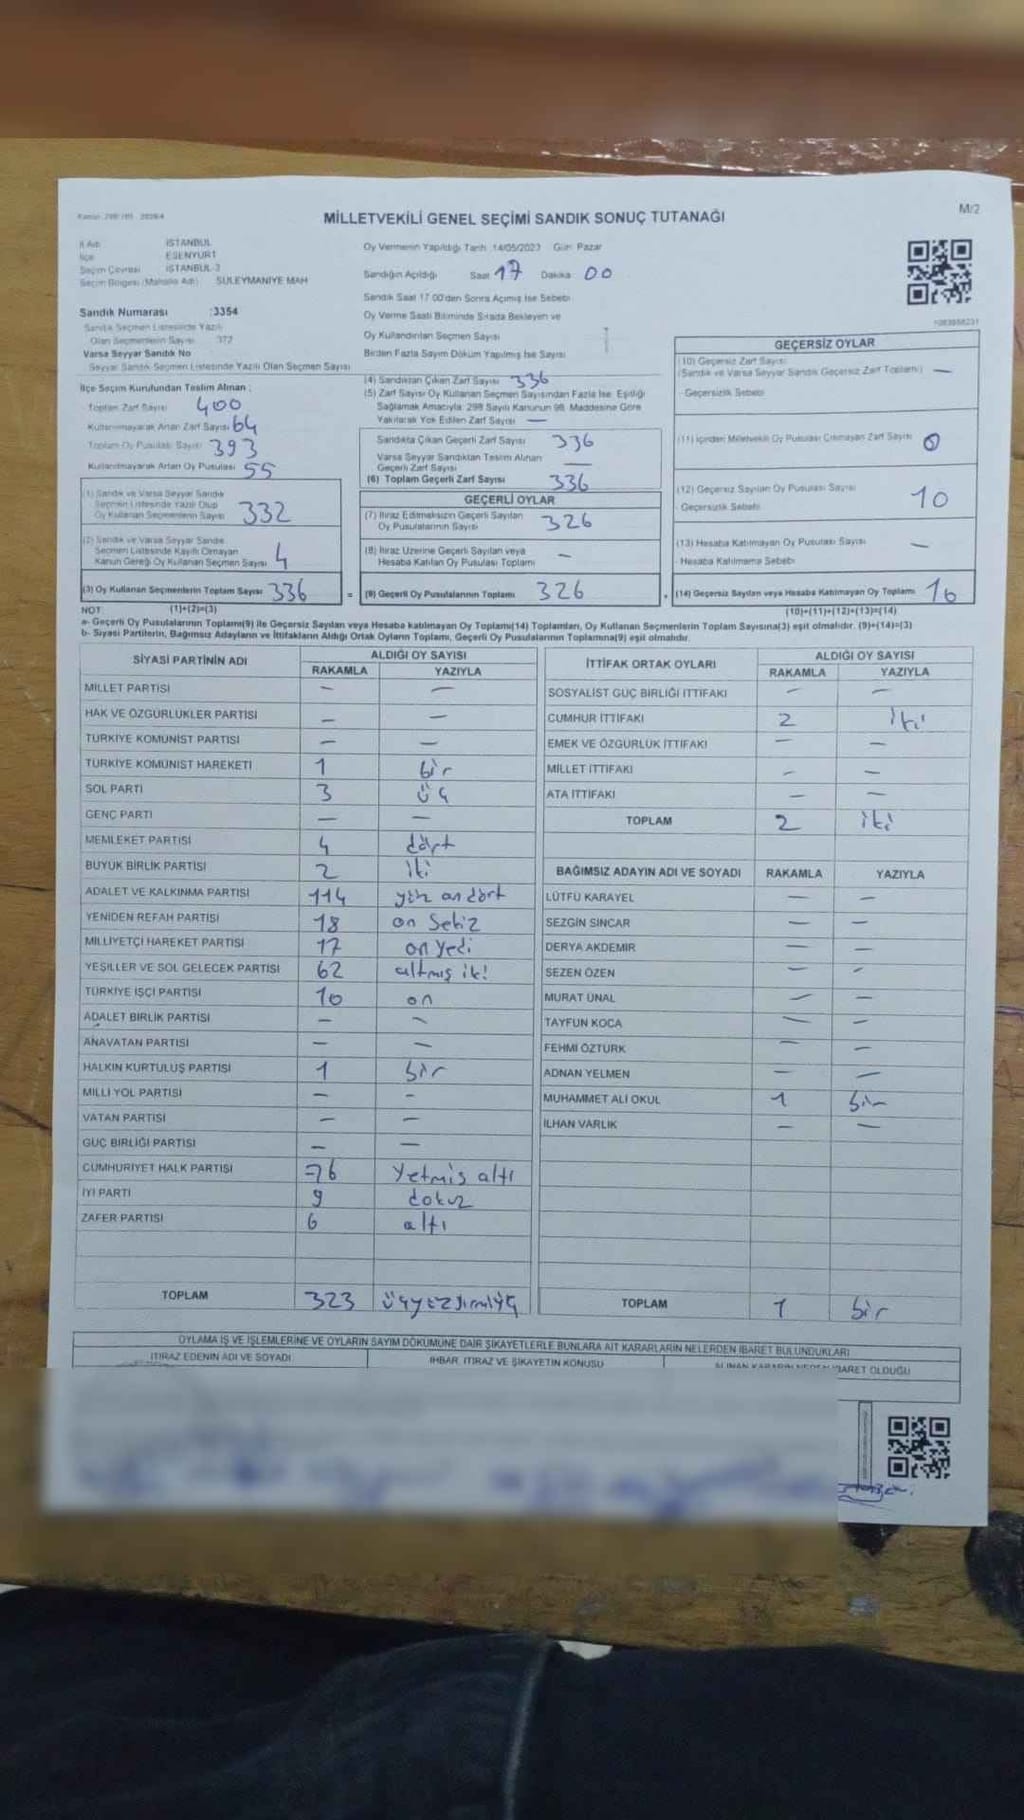 MİLLETVEKİLİ GENEL SEÇİMİ SANDIK SONUÇ TUTANAĞI
M/2
İl Adı İSTANBUL
İlçe ESENYURT
Seçim Çevresi İSTANBUL-3
Seçim Bölgesi (Mahalle Adı) SÜLEYMANİYE MAH
Sandık Numarası :3354
Sandık Seçmen Listesinde Yazılı
Olan Seçmenlerin Sayısı 372
Varsa Seyyar Sandık No
Seyyar Sandık Seçmen Listesinde Yazılı Olan Seçmen Sayısı
İlçe Seçim Kurulundan Teslim Alınan :
Toplam Zarf Sayısı 400
Kullanılmayarak Artan Zarf Sayısı 64
Toplam Oy Pusulası Sayısı 393
Kullanılmayarak Artan Oy Pusulası 55
(1) Sandık ve Varsa Seyyar Sandık
Seçmen Listesinde Yazılı Olup
Oy Kullanan Seçmenlerin Sayısı 332
(2) Sandık ve Varsa Seyyar Sandık
Seçmen Listesinde Kayıtlı Olmayan
Kanun Gereği Oy Kullanan Seçmen Sayısı 4
(3) Oy Kullanan Seçmenlerin Toplam Sayısı 336 =
Oy Vermenin Yapıldığı Tarih 14/05/2023 Gün Pazar
Sandığın Açıldığı Saat 17 Dakika 00
Sandık Saat 17.00'den Sonra Açılmış İse Sebebi
Oy Verme Saati Bitiminde Sırada Bekleyen ve
Oy Kullandırılan Seçmen Sayısı
Birden Fazla Sayım Döküm Yapılmış İse Sayısı
(4) Sandıktan Çıkan Zarf Sayısı 336
(5) Zarf Sayısı Oy Kullanan Seçmen Sayısından Fazla İse, Eşitliği
Sağlamak Amacıyla; 298 Sayılı Kanunun 98. Maddesine Göre
Yakılarak Yok Edilen Zarf Sayısı —
Sandıkta Çıkan Geçerli Zarf Sayısı 336
Varsa Seyyar Sandıktan Teslim Alınan
Geçerli Zarf Sayısı —
(6) Toplam Geçerli Zarf Sayısı 336
GEÇERLİ OYLAR
(7) İtiraz Edilmeksizin Geçerli Sayılan
Oy Pusulalarının Sayısı 326
(8) İtiraz Üzerine Geçerli Sayılan veya
Hesaba Katılan Oy Pusulası Toplamı —
(9) Geçerli Oy Pusulalarının Toplamı 326 +
GEÇERSİZ OYLAR
(10) Geçersiz Zarf Sayısı
(Sandık ve Varsa Seyyar Sandık Geçersiz Zarf Toplamı) —
Geçersizlik Sebebi
(11) İçinden Milletvekili Oy Pusulası Çıkmayan Zarf Sayısı 0
(12) Geçersiz Sayılan Oy Pusulası Sayısı 10
Geçersizlik Sebebi
(13) Hesaba Katılmayan Oy Pusulası Sayısı —
Hesaba Katılmama Sebebi
(14) Geçersiz Sayılan veya Hesaba Katılmayan Oy Toplamı 10
NOT: (1)+(2)=(3) (10)+(11)+(12)+(13)=(14)
a- Geçerli Oy Pusulalarının Toplamı(9) ile Geçersiz Sayılan veya Hesaba katılmayan Oy Toplamı(14) Toplamları, Oy Kullanan Seçmenlerin Toplam Sayısına(3) eşit olmalıdır. (9)+(14)=(3)
b- Siyasi Partilerin, Bağımsız Adayların ve İttifakların Aldığı Ortak Oyların Toplamı, Geçerli Oy Pusulalarının Toplamına(9) eşit olmalıdır.
SİYASİ PARTİNİN ADI ALDIĞI OY SAYISI
RAKAMLA YAZIYLA
MİLLET PARTİSİ — —
HAK VE ÖZGÜRLÜKLER PARTİSİ — —
TÜRKİYE KOMÜNİST PARTİSİ — —
TÜRKİYE KOMÜNİST HAREKETİ 1 bir
SOL PARTİ 3 üç
GENÇ PARTİ — —
MEMLEKET PARTİSİ 4 dört
BÜYÜK BİRLİK PARTİSİ 2 iki
ADALET VE KALKINMA PARTİSİ 114 yüz on dört
YENİDEN REFAH PARTİSİ 18 on sekiz
MİLLİYETÇİ HAREKET PARTİSİ 17 on yedi
YEŞİLLER VE SOL GELECEK PARTİSİ 62 altmış iki
TÜRKİYE İŞÇİ PARTİSİ 10 on
ADALET BİRLİK PARTİSİ — —
ANAVATAN PARTİSİ — —
HALKIN KURTULUŞ PARTİSİ 1 bir
MİLLİ YOL PARTİSİ — —
VATAN PARTİSİ — —
GÜÇ BİRLİĞİ PARTİSİ — —
CUMHURİYET HALK PARTİSİ 76 Yetmiş altı
İYİ PARTİ 9 dokuz
ZAFER PARTİSİ 6 altı
TOPLAM 323 üçyüzyirmiüç
İTTİFAK ORTAK OYLARI ALDIĞI OY SAYISI
RAKAMLA YAZIYLA
SOSYALİST GÜÇ BİRLİĞİ İTTİFAKI — —
CUMHUR İTTİFAKI 2 iki
EMEK VE ÖZGÜRLÜK İTTİFAKI — —
MİLLET İTTİFAKI — —
ATA İTTİFAKI — —
TOPLAM 2 iki
BAĞIMSIZ ADAYIN ADI VE SOYADI RAKAMLA YAZIYLA
LÜTFÜ KARAYEL — —
SEZGİN SINCAR — —
DERYA AKDEMİR — —
SEZEN ÖZEN — —
MURAT ÜNAL — —
TAYFUN KOCA — —
FEHMİ ÖZTÜRK — —
ADNAN YELMEN — —
MUHAMMET ALİ OKUL 1 bir
İLHAN VARLIK — —
TOPLAM 1 bir
OYLAMA İŞ VE İŞLEMLERİNE VE OYLARIN SAYIM DÖKÜMÜNE DAİR ŞİKAYETLERLE BUNLARA AİT KARARLARIN NELERDEN İBARET BULUNDUKLARI
İTİRAZ EDENİN ADI VE SOYADI İHBAR, İTİRAZ VE ŞİKAYETİN KONUSU ALINAN KARARIN NEDEN İBARET OLDUĞU